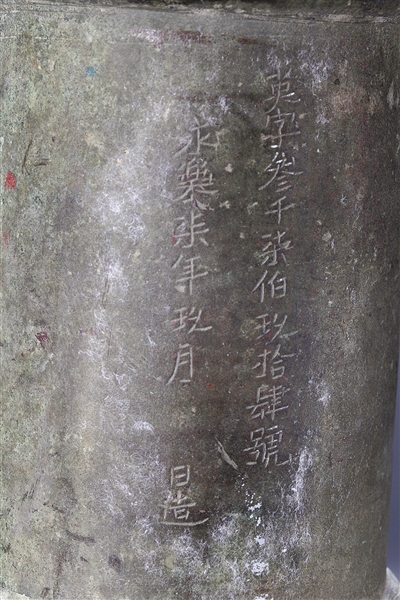 英字叄千柒伯玖拾肆號
永樂柒年玖月 日造